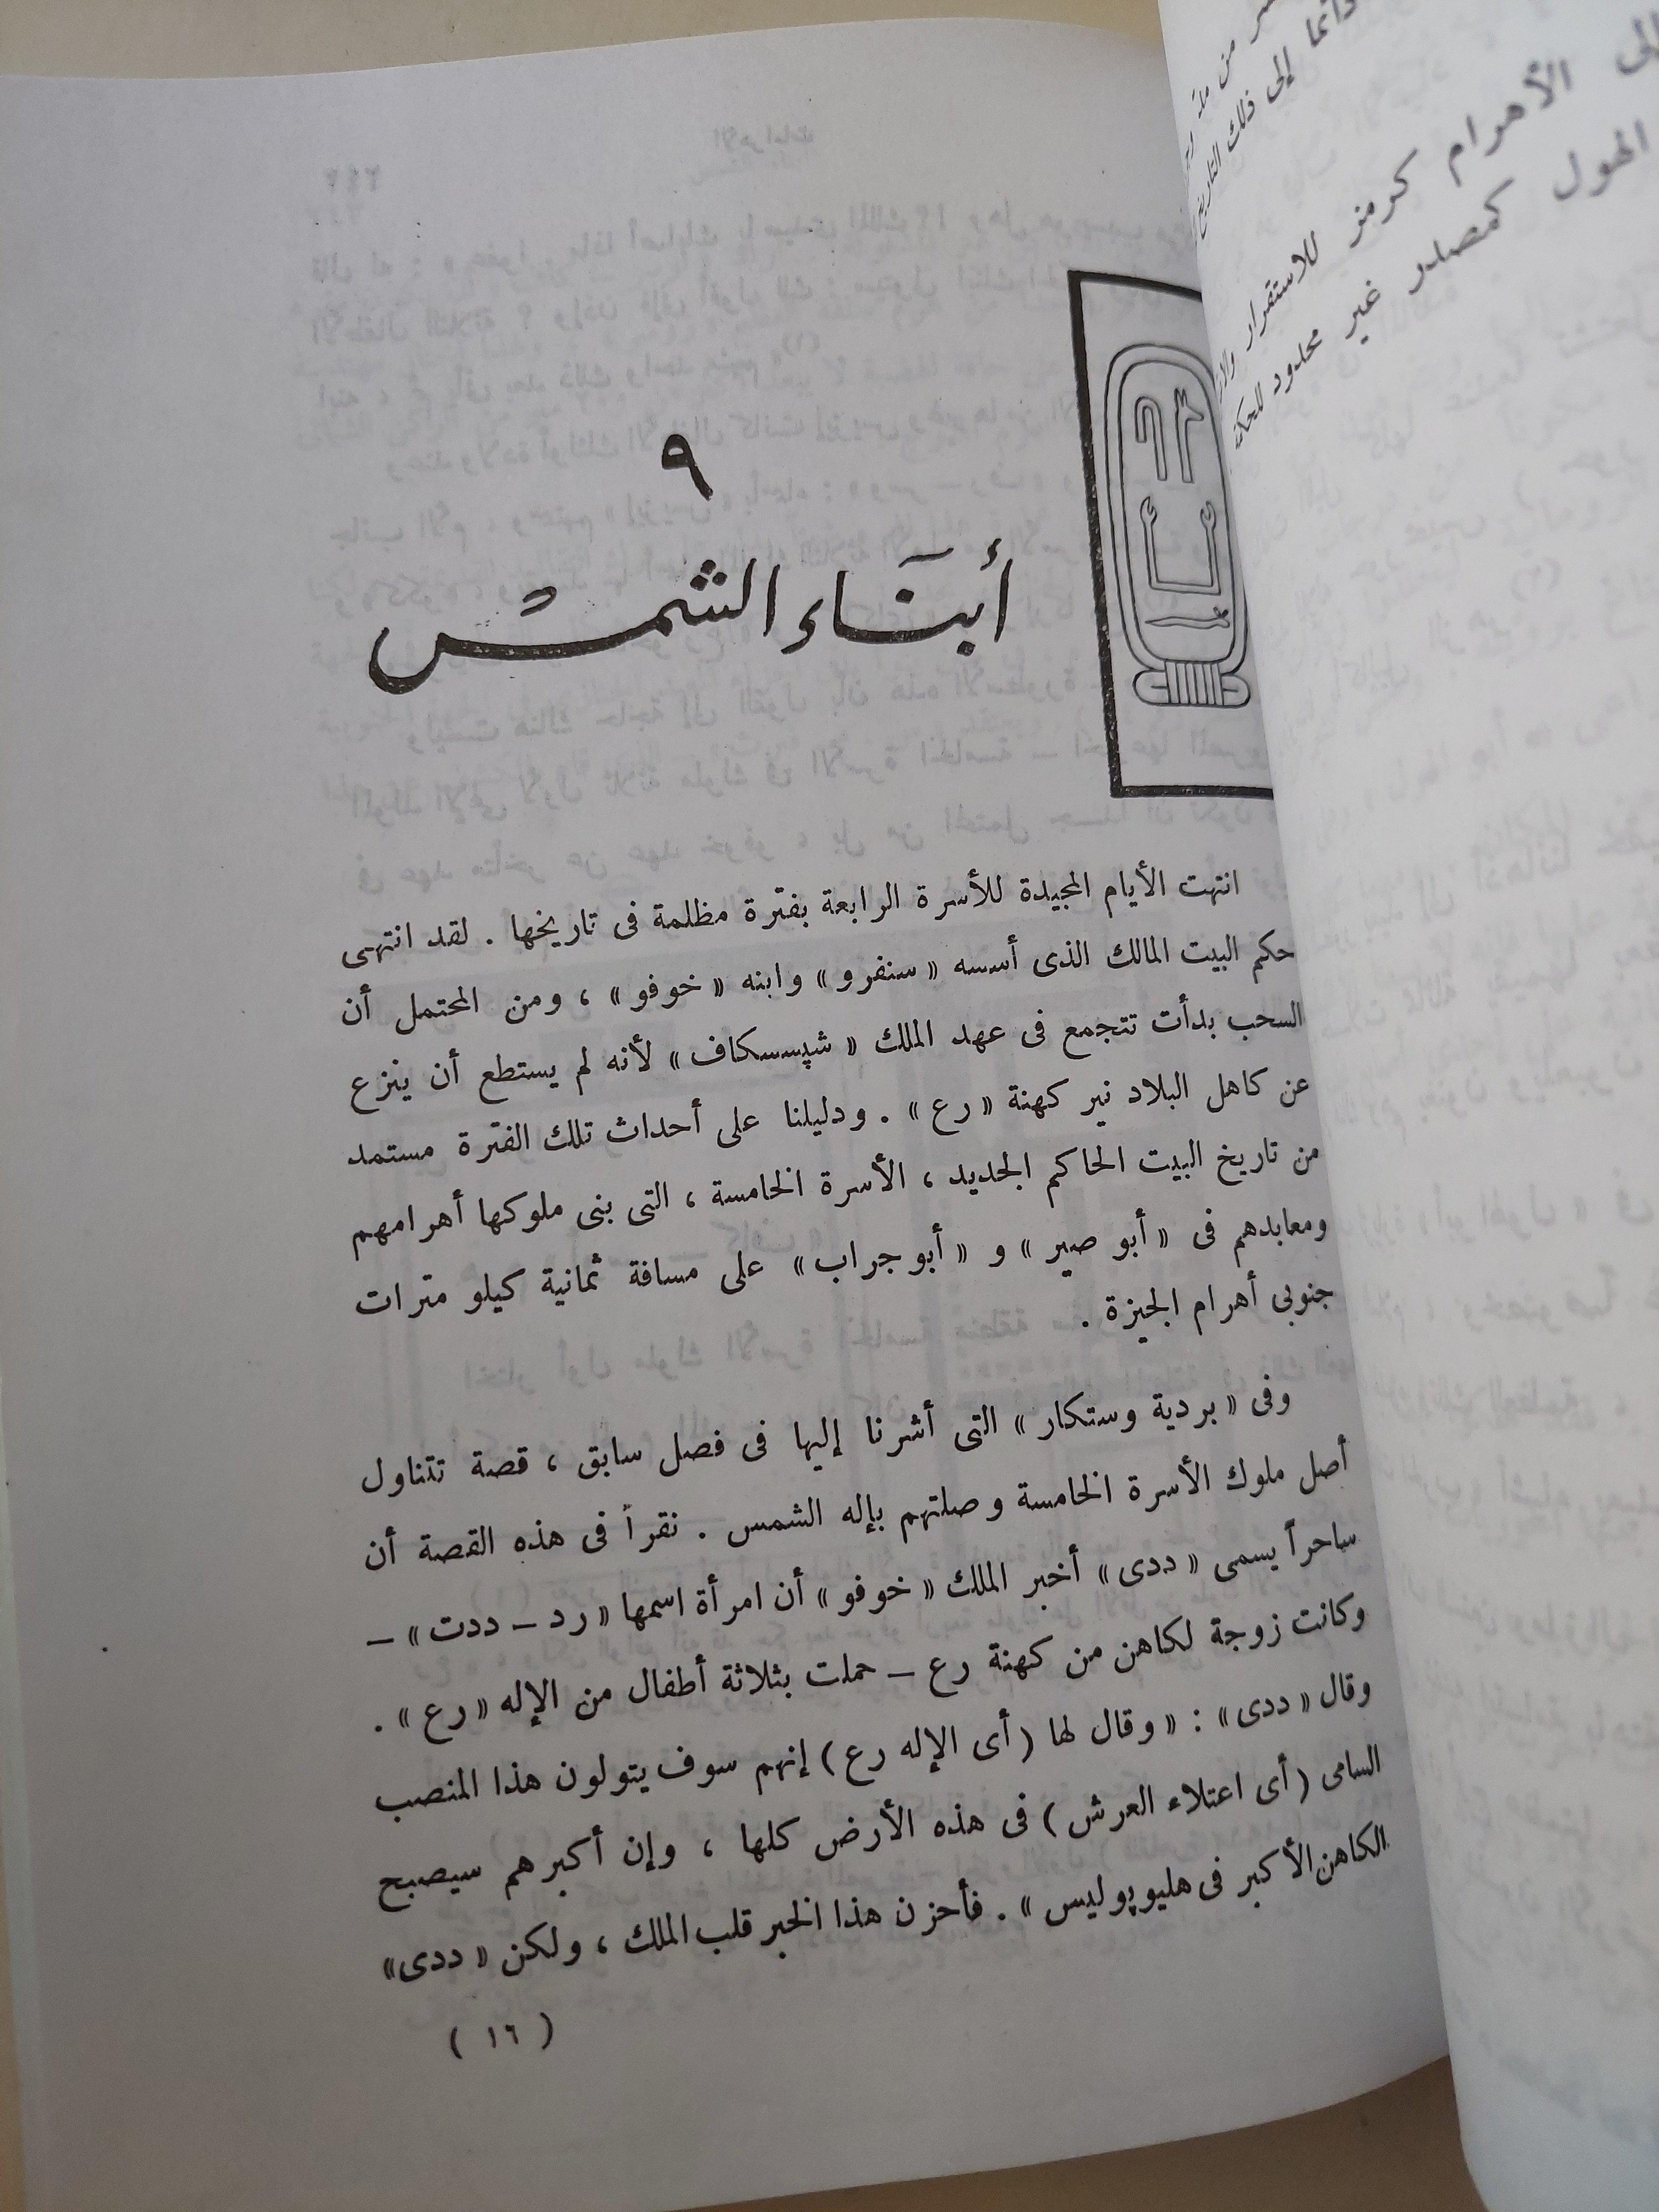 ٩
أبناء الشمس
انتهت الأيام المجيدة للأسرة الرابعة بفترة مظلمة فى تاريخها . لقد انتهى
حكم البيت المالك الذى أسسه « سنفرو » وابنه « خوفو » ، ومن المحتمل أن
السحب بدأت تتجمع فى عهد الملك « شپسسكاف » لأنه لم يستطع أن ينزع
عن كاهل البلاد نير كهنة « رع » . ودليلنا على أحداث تلك الفترة مستمد
من تاريخ البيت الحاكم الجديد ، الأسرة الخامسة ، التى بنى ملوكها أهرامهم
ومعابدهم فى « أبو صير » و « أبو جراب » على مسافة ثمانية كيلو مترات
جنوبى أهرام الجيزة .
وفى « بردية وستكار » التى أشرنا إليها فى فصل سابق ، قصة تتناول
أصل ملوك الأسرة الخامسة وصلتهم بإله الشمس . نقرأ فى هذه القصة أن
ساحراً يسمى « ددى » أخبر الملك « خوفو » أن امرأة اسمها « رد – ددت » –
وكانت زوجة لكاهن من كهنة رع – حملت بثلاثة أطفال من الإله « رع » .
وقال « ددى » : « وقال لها ( أى الإله رع ) إنهم سوف يتولون هذا المنصب
السامى ( أى اعتلاء العرش ) فى هذه الأرض كلها ، وإن أكبرهم سيصبح
الكاهن الأكبر فى هليوپوليس » . فأحزن هذا الخبر قلب الملك ، ولكن « ددى »
( ١٦ )
إلى ذلك التاريخ
الأهرام كرمز للاستقرار
الهول كمصدر غير محدود